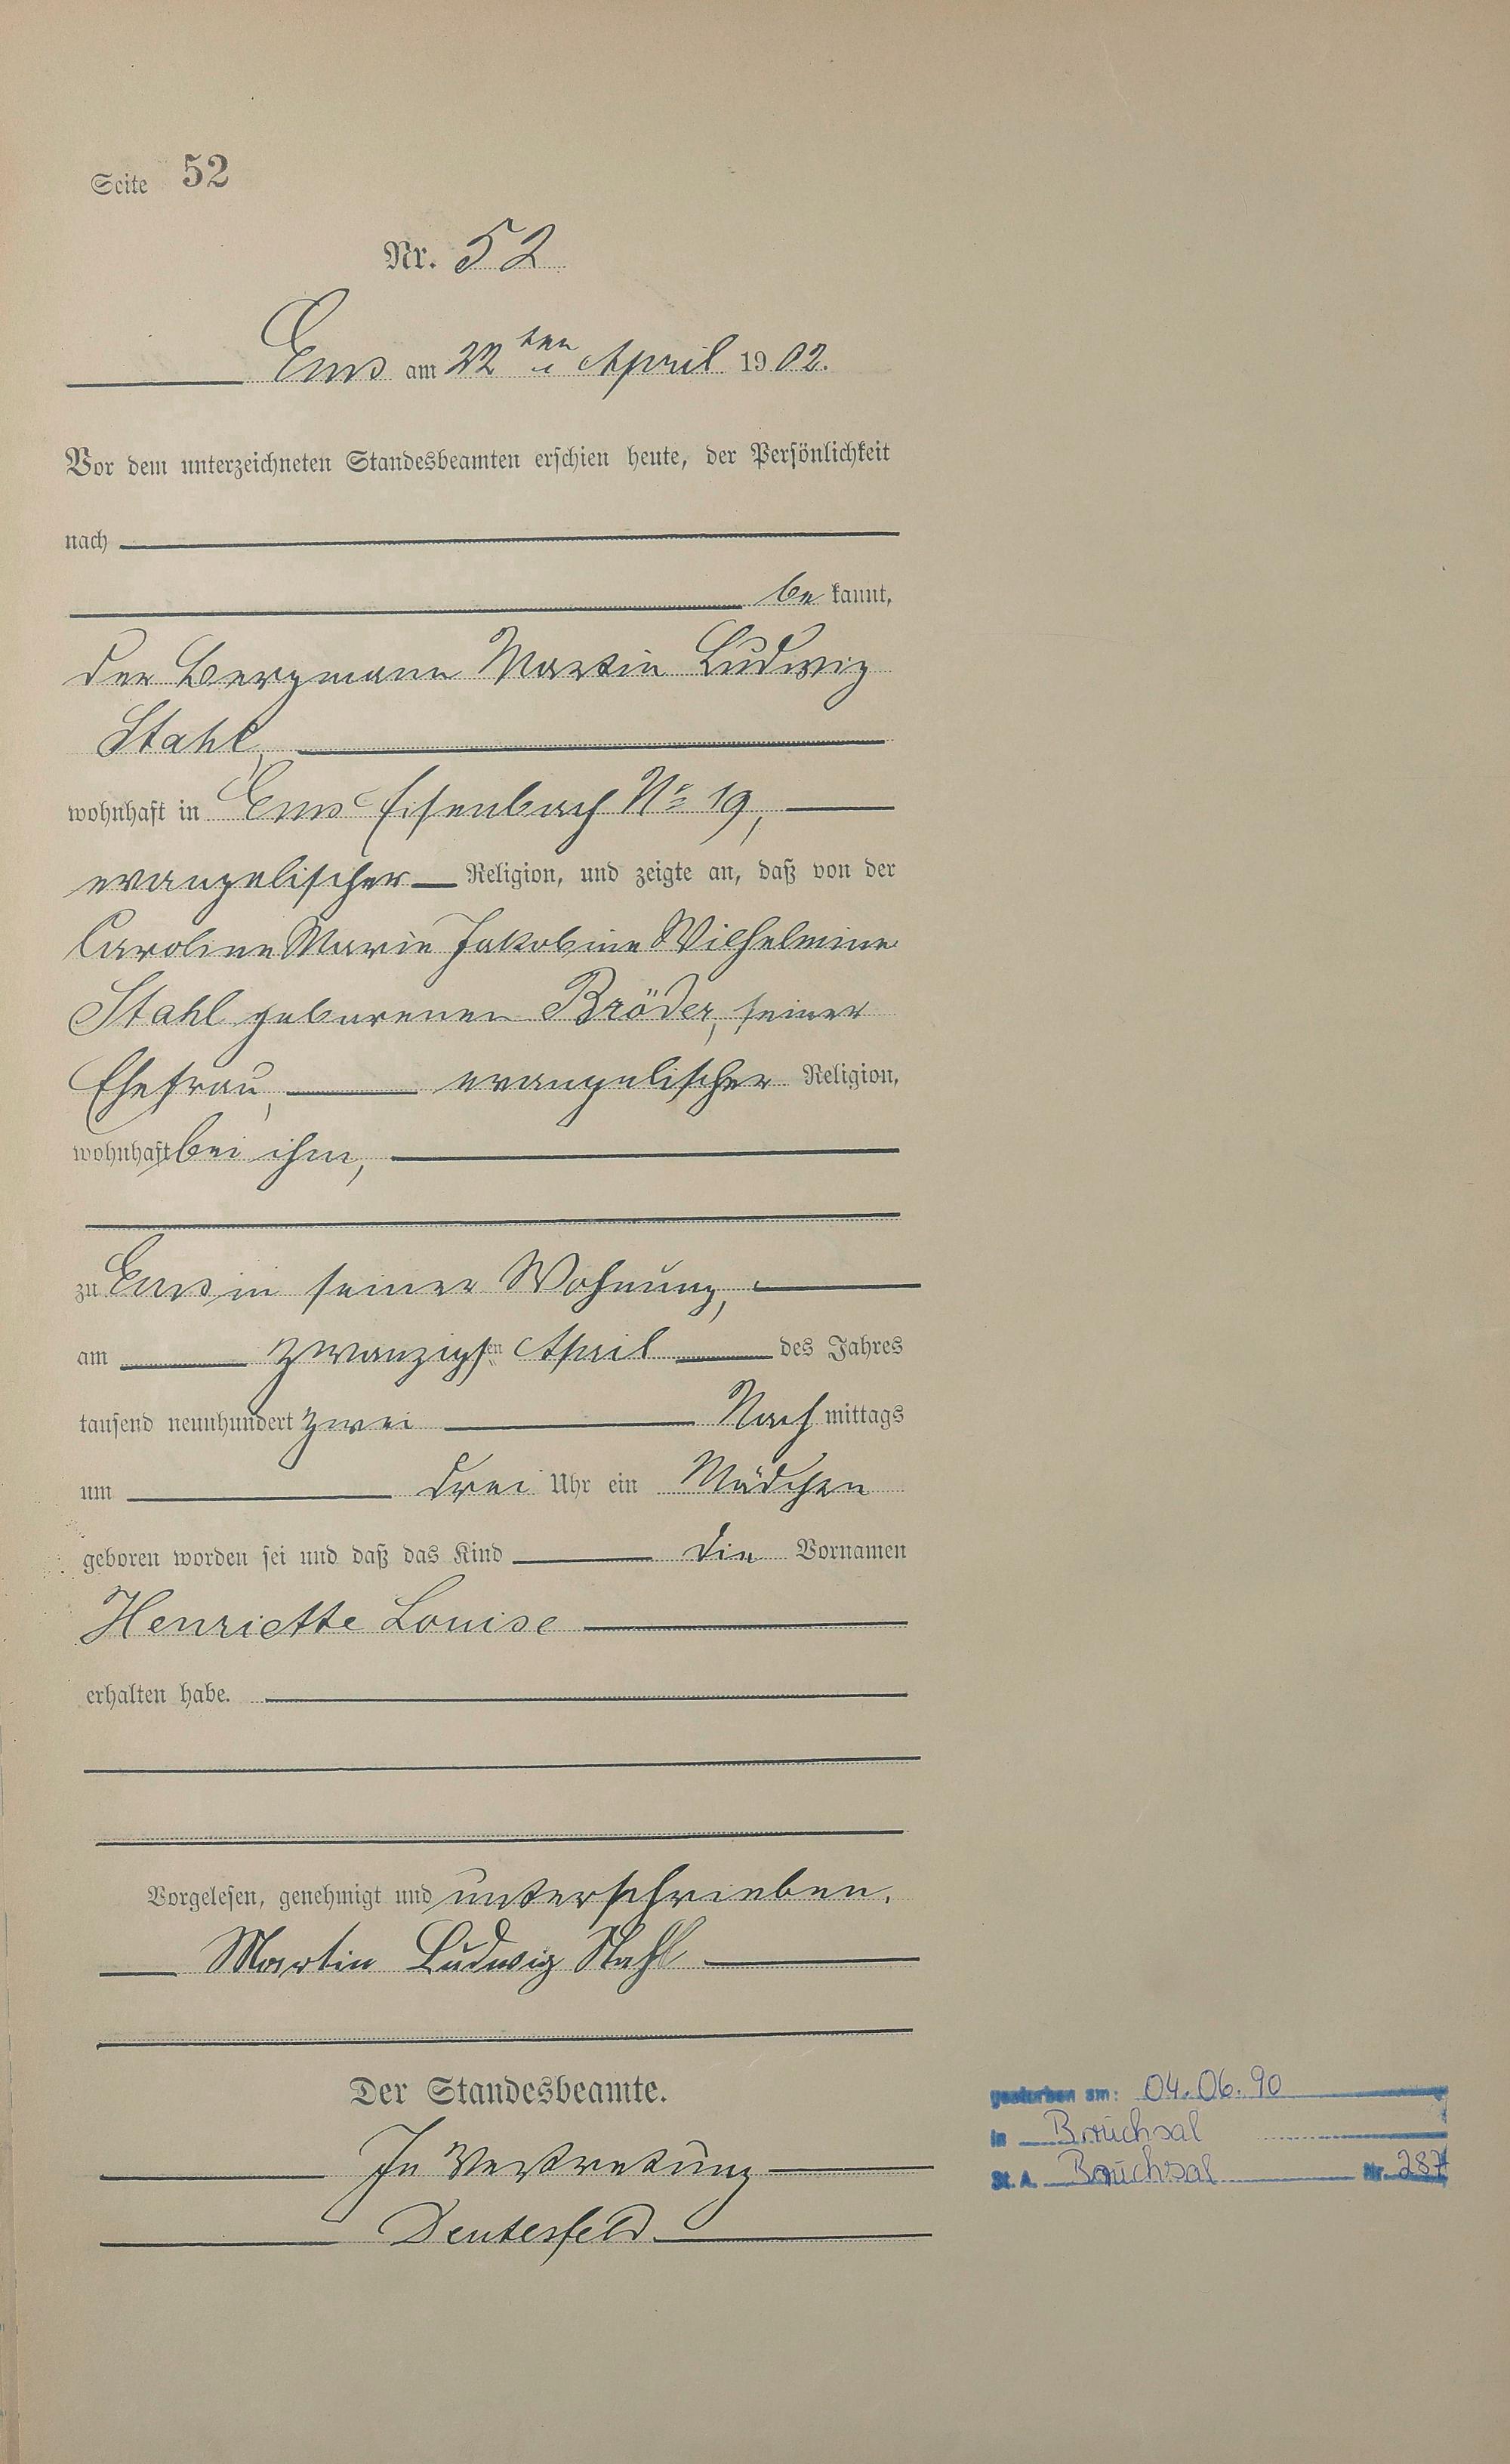 Seite 52
Nr. 52
Ems am 22ten April 1902.
Vor dem unterzeichneten Standesbeamten erschien heute, der Persönlichkeit
nach
be kannt,
der Bergmann Martin Ludwig
Stahl,
wohnhaft in Ems Eisenbach No 19,
evangelischer Religion, und zeigte an, daß von der
Caroline Marie Jakobine Wilhelmine
Stahl geborenen Bröder, seiner
Ehefrau, evangelischer Religion,
wohnhaft bei ihm,
zu Ems in seiner Wohnung,
am zwanzigsten April des Jahres
tausend neunhundert zwei Nachmittags
um drei Uhr ein Mädchen
geboren worden sei und daß das Kind die Vornamen
Henriette Louise
erhalten habe.
Vorgelesen, genehmigt und unterschrieben.
Martin Ludwig Stahl
Der Standesbeamte.
In Vertretung
Deutesfeld
gestorben am: 04.06.90
in Bruchsal
St. A. Bruchsal Nr. 287